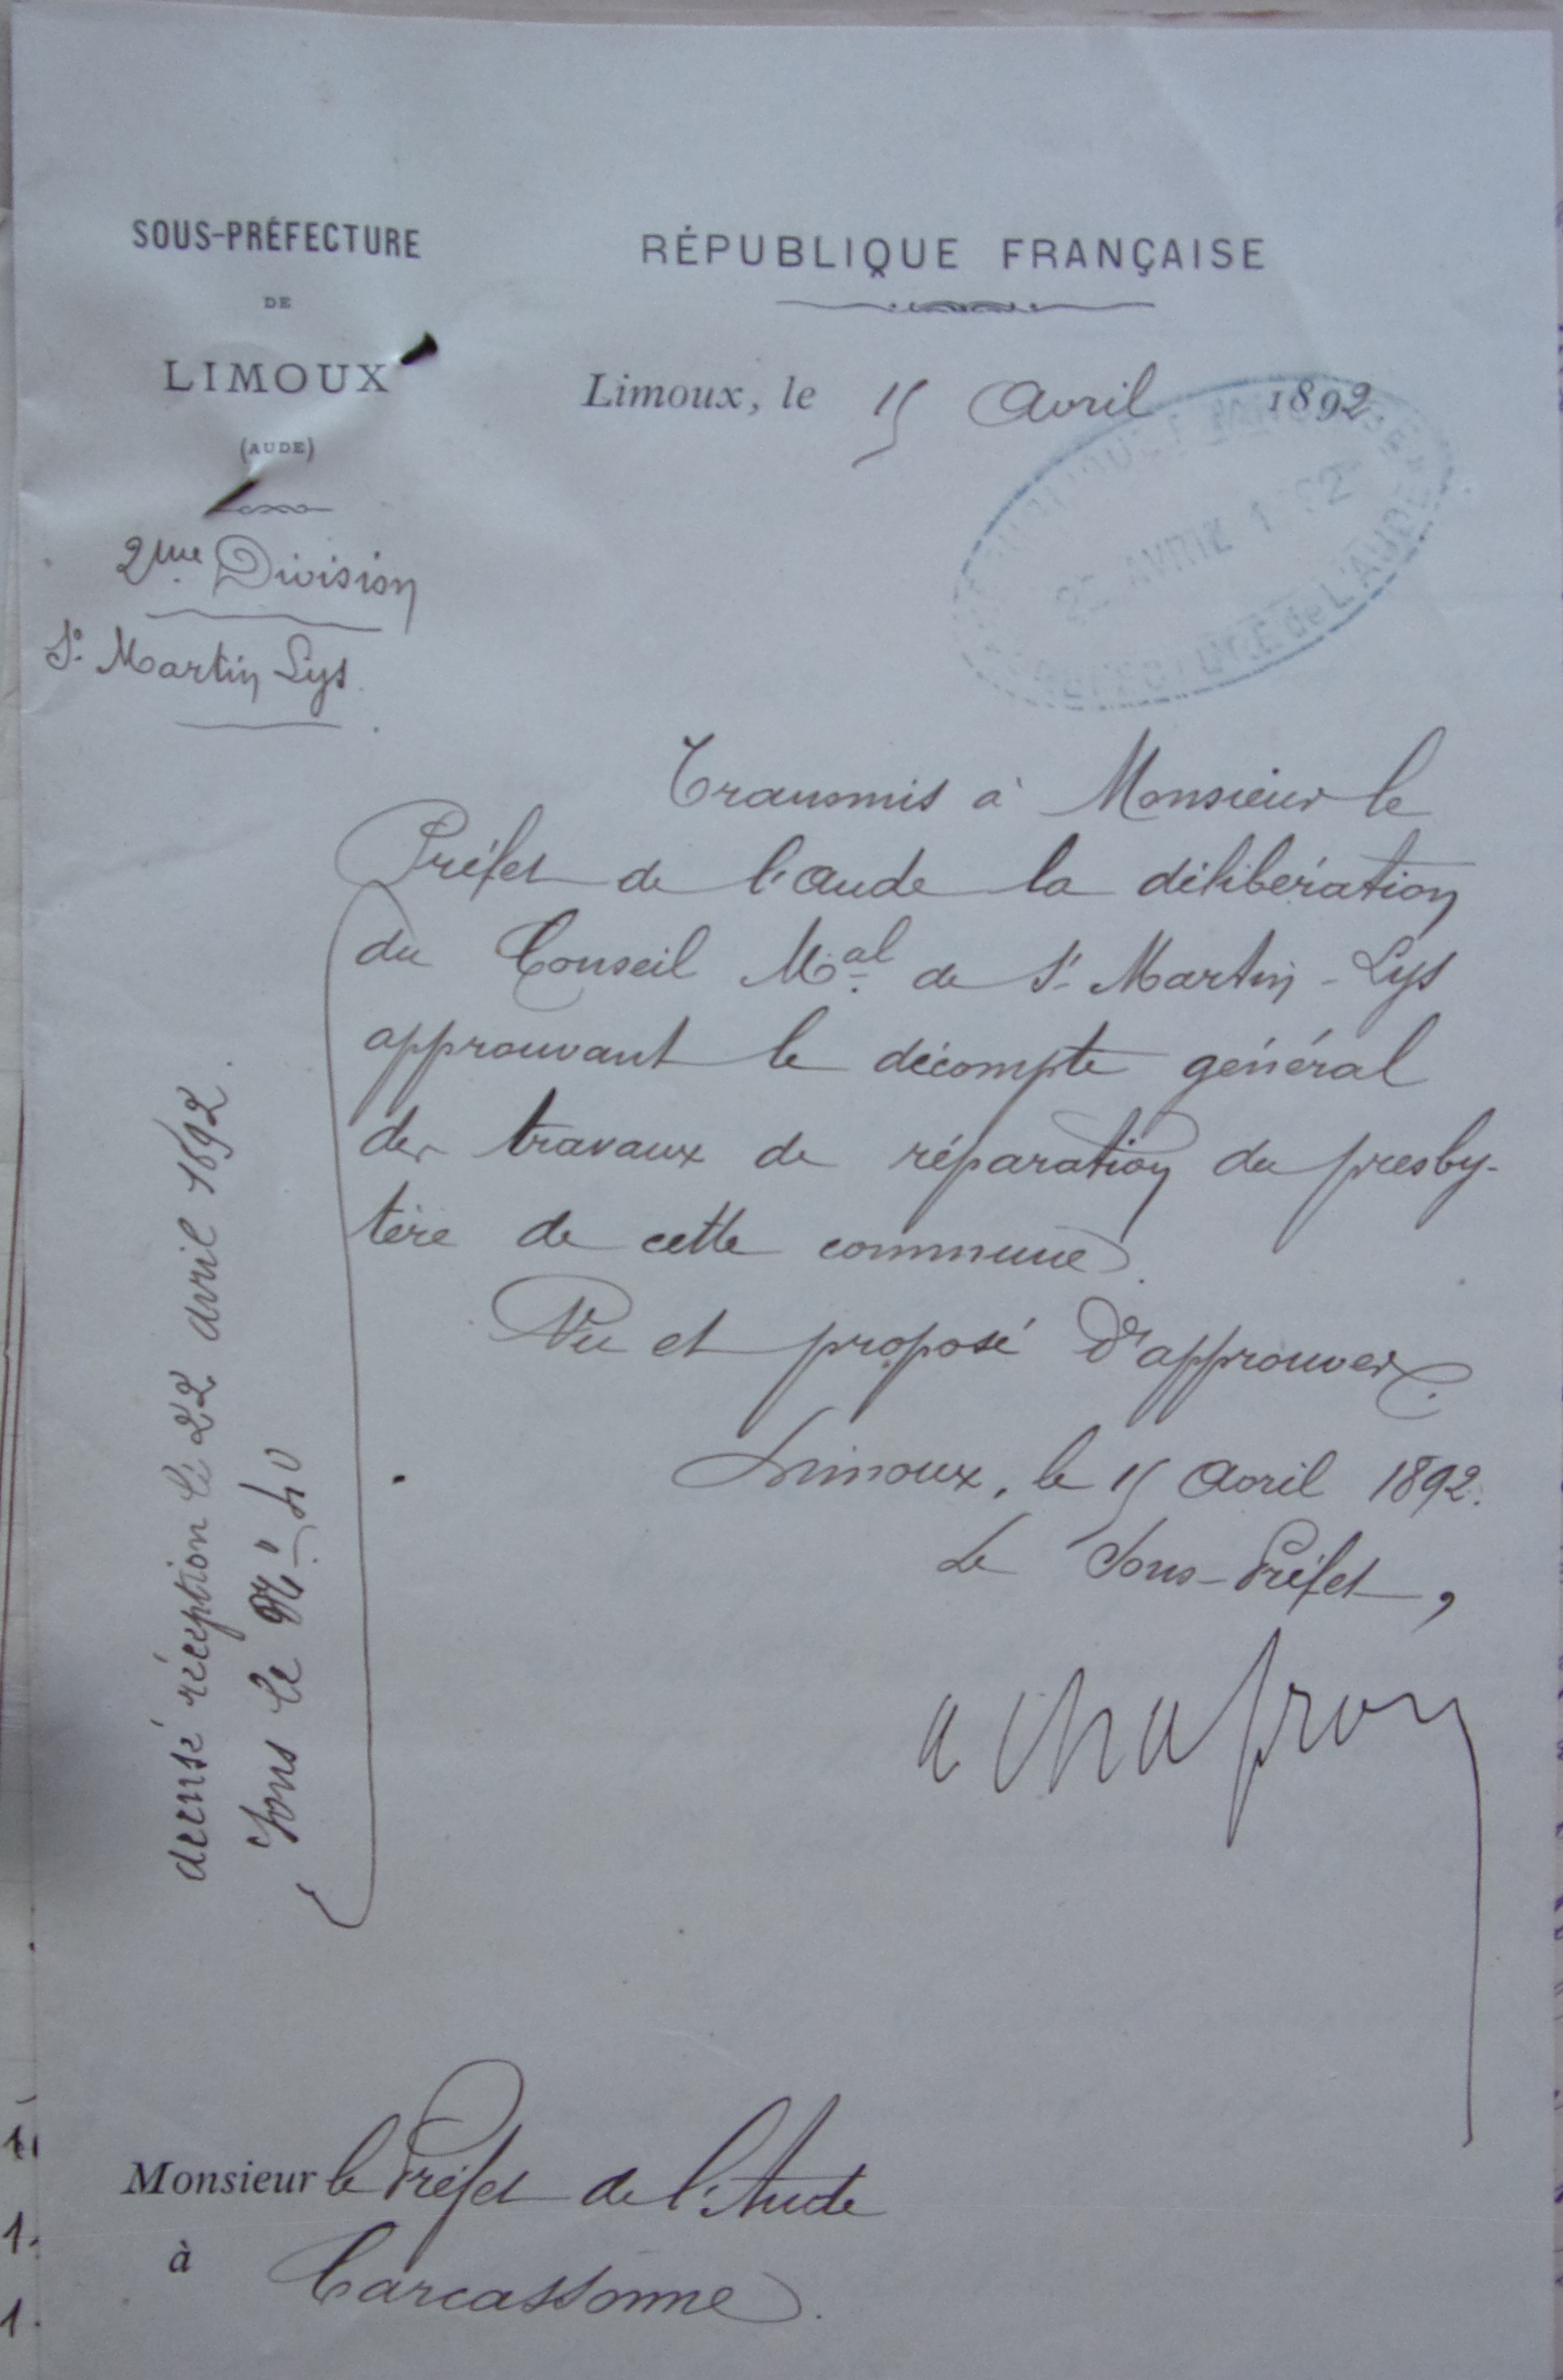 SOUS-PRÉFECTURE
DE
LIMOUX
(AUDE)
2me Division
St Martin Lys
RÉPUBLIQUE FRANÇAISE
Limoux, le 15 Avril 1892
AVRIL
de L'AUDE
Transmis à Monsieur le
Préfet de l'Aude la délibération
du Conseil Mal de St Martin-Lys
approuvant le décompte général
des travaux de réparation du presby-
tère de cette commune.
Vu et proposé d'approuver.
Limoux, le 15 Avril 1892.
Le Sous-Préfet,
accusé réception le 22 avril 1892.
Sous le No
Monsieur le Préfet de l'Aude
à Carcassonne.